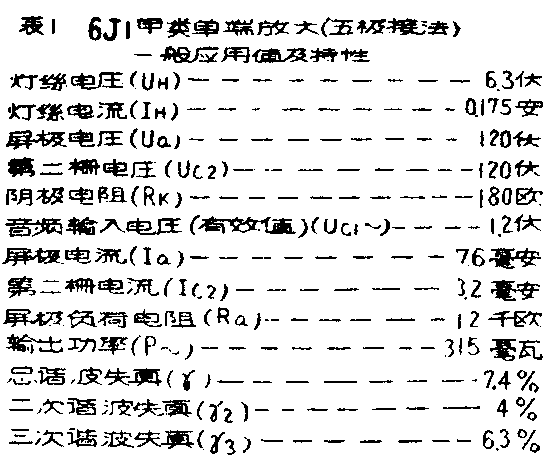 表1 6J1甲类单端放大(五极接法)
一般应用值及特性
灯丝电压(UH)—————— 6.3伏
灯丝电流(IH)—————— 0.175安
屏极电压(Ua)—————— 120伏
第二栅电压(UC2)————— 120伏
阴极电阻(RK)—————— 180欧
音频输入电压(有效值)(UC1~)—— 1.2伏
屏极电流(Ia)————— 7.6毫安
第二栅电流(IC2)———— 3.2毫安
屏极负荷电阻(Ra)——— 12千欧
输出功率(P~)————— 315毫瓦
总谐波失真(γ)————— 7.4%
二次谐波失真(γ2)———— 4%
三次谐波失真(γ3)———— 6.3%